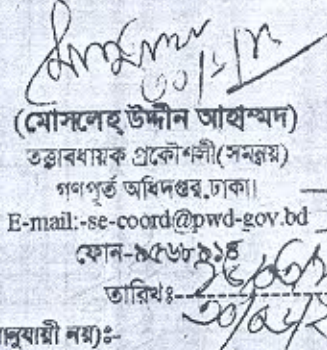 (মোসলেহ্ উদ্দীন আহাম্মদ)
তত্ত্বাবধায়ক প্রকৌশলী(সমন্বয়)
গণপূর্ত অধিদপ্তর,ঢাকা।
E-mail:-se-coord@pwd-gov.bd
ফোন-৯৫৬৮৯১৪
তারিখঃ-
নুযায়ী নয়)ঃ-